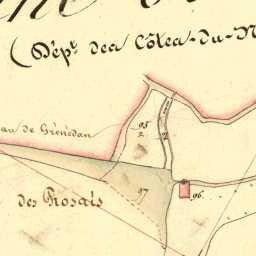 (Dépt. des Côtes-du-N
au de Grénédan
95
2
des Rosais
97
96